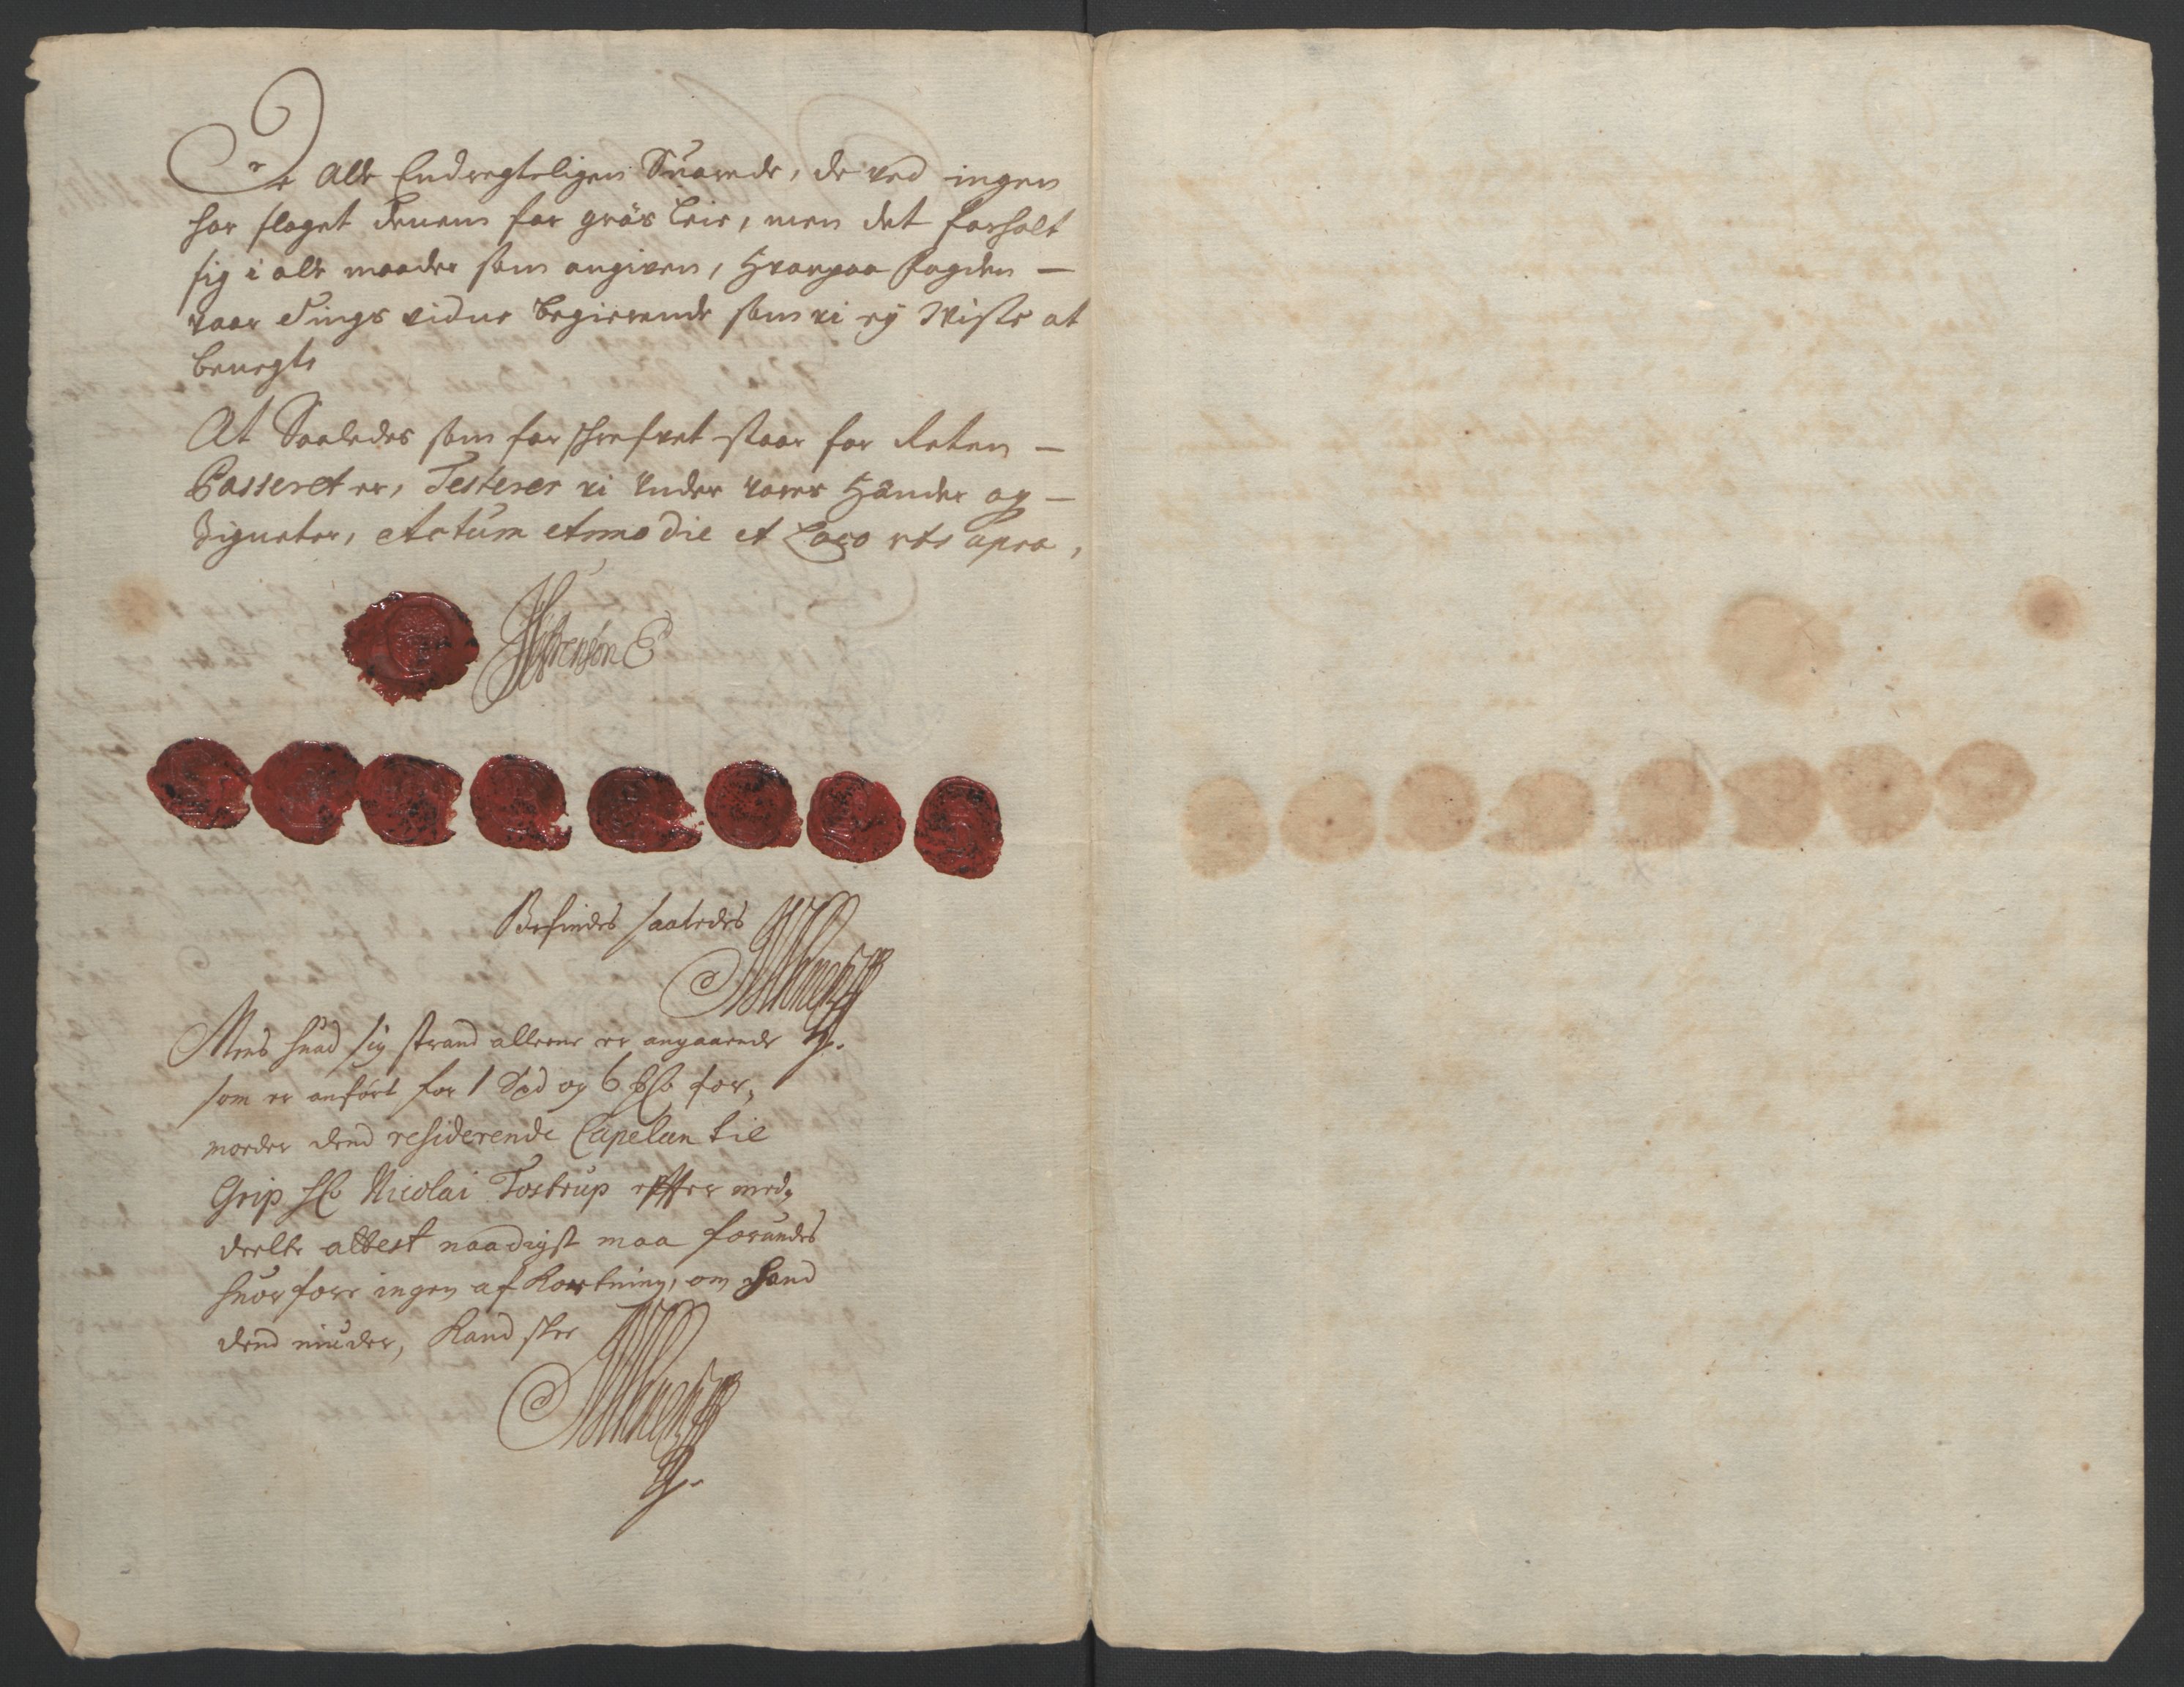 De Alle Endregteligen Suarede, de ved ingen
har slaget dennem for gräs Leie, men det forholt
sig i alle maader som angiven, Hvorpaa Fogden —
vaar Tings vidne begierende som vi ey Viste at
benegte
At Saaledes som for schrefvet staar for Reten —
Passeret er, Testerer vi Under vores Hænder og —
Signeter, Actum Anno die et Loco uts upra,
Befindes saaledes
Mens huad sig strand alleene er angaaende
som er anført for 1 Dd og 6 for„
moeder dend residerende Capelan til
Grip Hr Nicolai Tostrup effter med„
deelte attest naadigst maa forundes
huorfore ingen afkortning, om hand
dend niuder, kand skee